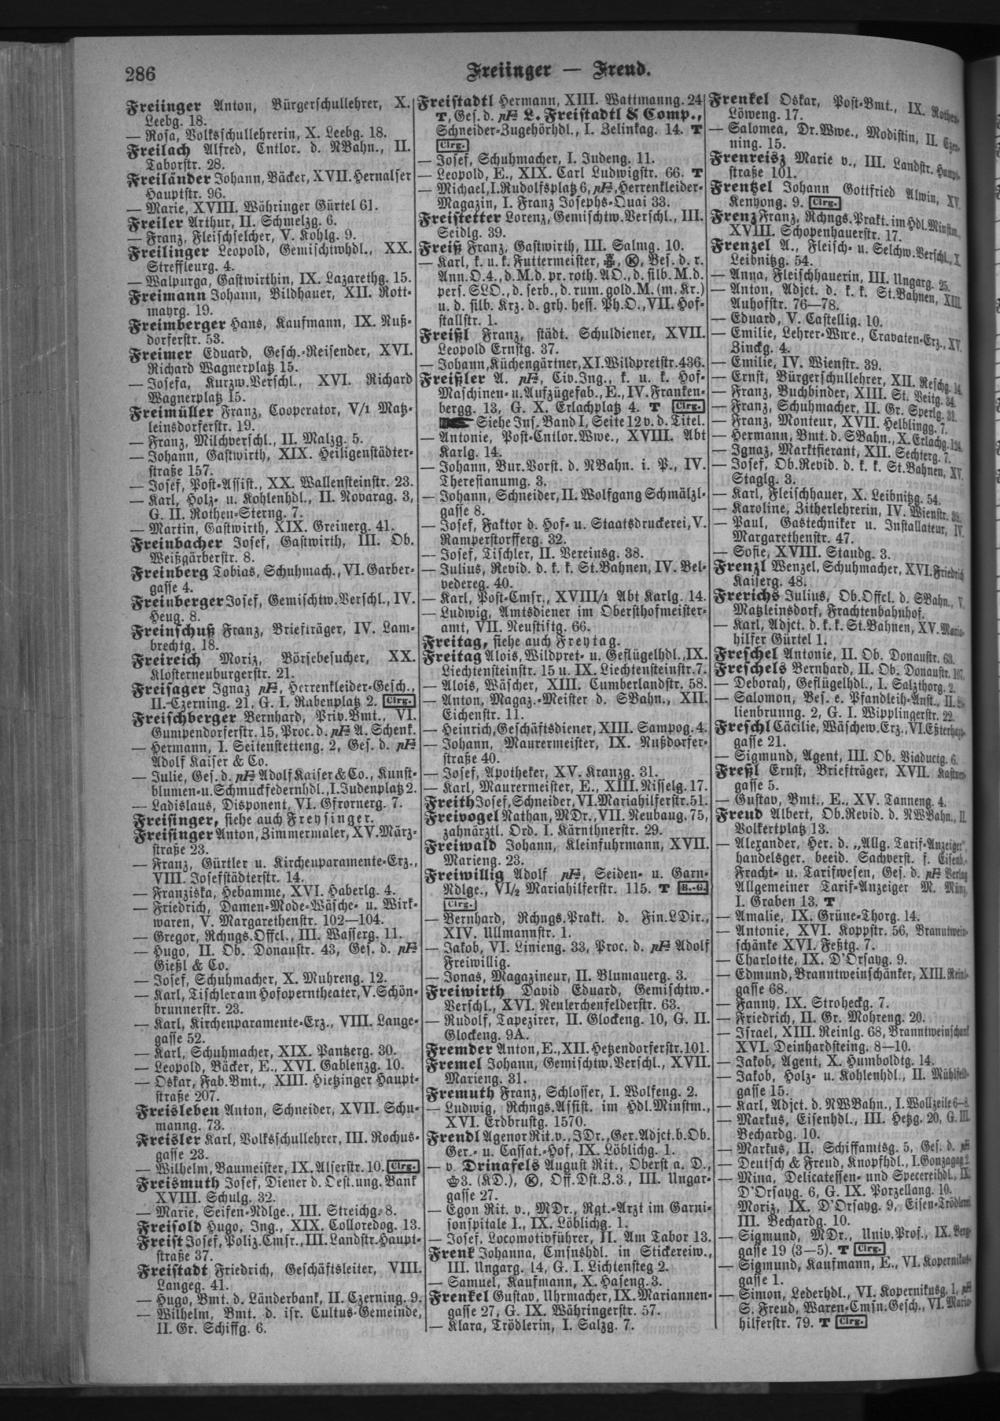 286
Freiinger — Freud.
Freiinger Anton, Bürgerschullehrer, X.
Leebg. 18.
— Rosa, Volksschullehrerin, X. Leebg. 18.
Freilach Alfred, Cntlor. d. NBahn., II.
Taborstr. 28.
Freiländer Johann, Bäcker, XVII. Hernalser
Hauptstr. 96.
— Marie, XVIII. Währinger Gürtel 61.
Freiler Arthur, II. Schmelzg. 6.
— Franz, Fleischselcher, V. Kohlg. 9.
Freilinger Leopold, Gemischtwhdl., XX.
Streffleurg. 4.
— Walpurga, Gastwirthin, IX. Lazarethg. 15.
Freimann Johann, Bildhauer, XII. Rott-
mayrg. 19.
Freimberger Hans, Kaufmann, IX. Nuß-
dorferstr. 53.
Freimer Eduard, Gesch.-Reisender, XVI.
Richard Wagnerplatz 15.
— Josefa, Kurzw.Verschl., XVI. Richard
Wagnerplatz 15.
Freimüller Franz, Cooperator, V/1 Matz-
leinsdorferstr. 19.
— Franz, Milchverschl., II. Malzg. 5.
— Johann, Gastwirth, XIX. Heiligenstädter-
straße 157.
— Josef, Post-Assist., XX. Wallensteinstr. 23.
— Karl, Holz- u. Kohlenhdl., II. Novarag. 3,
G. II. Rothen-Sterng. 7.
— Martin, Gastwirth, XIX. Greinerg. 41.
Freinbacher Josef, Gastwirth, III. Ob.
Weißgärberstr. 8.
Freinberg Tobias, Schuhmach., VI. Garber-
gasse 4.
Freinberger Josef, Gemischtw.Verschl., IV.
Heug. 8.
Freinschuß Franz, Briefträger, IV. Lam-
brechtg. 18.
Freireich Moriz, Börsebesucher, XX.
Klosterneuburgerstr. 21.
Freisager Ignaz, Herrenkleider-Gesch.,
II. Czerning. 21, G. I. Rabenplatz 2. Clrg.
Freischberger Bernhard, Priv.Bmt., VI.
Gumpendorferstr. 15, Proc. d. A. Schenk.
— Hermann, I. Seitenstetteng. 2, Ges. d.
Adolf Kaiser & Co.
— Julie, Ges. d. Adolf Kaiser & Co., Kunst-
blumen-u. Schmuckfedernhdl., I. Judenplatz 2.
— Ladislaus, Disponent, VI. Gfrornerg. 7.
Freisinger, siehe auch Freysinger.
Freisinger Anton, Zimmermaler, XV. März-
straße 23.
— Franz, Gürtler u. Kirchenparamente-Erz.,
VIII. Josefstädterstr. 14.
— Franziska, Hebamme, XVI. Haberlg. 4.
— Friedrich, Damen-Mode-Wäsche- u. Wirk-
waren, V. Margarethenstr. 102—104.
— Gregor, Rchngs.Offcl., III. Wasserg. 11.
— Hugo, II. Ob. Donaustr. 43, Ges. d.
Gießl & Co.
— Josef, Schuhmacher, X. Muhreng. 12.
— Karl, Tischler am Hofoperntheater, V. Schön-
brunnerstr. 23.
— Karl, Kirchenparamente-Erz., VIII. Lange-
gasse 52.
— Karl, Schuhmacher, XIX. Pantzerg. 30.
— Leopold, Bäcker, E., XVI. Gablenzg. 10.
— Oskar, Fab.Bmt., XIII. Hietzinger Haupt-
straße 207.
Freisleben Anton, Schneider, XVII. Schu-
manng. 73.
Freisler Karl, Volksschullehrer, III. Rochus-
gasse 23.
— Wilhelm, Baumeister, IX. Alserstr. 10. Clrg.
Freismuth Josef, Diener d. Oest.ung. Bank
XVIII. Schulg. 32.
— Marie, Seifen-Ndlge., III. Streichg. 8.
Freisold Hugo, Ing., XIX. Colloredog. 13.
Freist Josef, Poliz.Cmsr., III. Landstr. Haupt-
straße 37.
Freistadt Friedrich, Geschäftsleiter, VIII.
Langeg. 41.
— Hugo, Bmt. d. Länderbank, II. Czerning. 9.
— Wilhelm, Bmt. d. isr. Cultus-Gemeinde,
II. Gr. Schiffg. 6.
Freistadtl Hermann, XIII. Wattmanng. 24
T, Ges. d. L. Freistadtl & Comp.,
Schneider-Zugehörhdl., I. Zelinkag. 14. T
Clrg.
— Josef, Schuhmacher, I. Judeng. 11.
— Leopold, E., XIX. Carl Ludwigstr. 66. T
— Michael, I. Rudolfsplatz 6, Herrenkleider-
Magazin, I. Franz Josephs-Quai 33.
Freistetter Lorenz, Gemischtw.Verschl., III.
Seidlg. 39.
Freiß Franz, Gastwirth, III. Salmg. 10.
— Karl, k. u. k. Futtermeister, Bes. d. r.
Ann.O.4., d.M.d. pr. roth. A.O., d. silb. M.d.
pers. SLO., d. serb., d. rum. gold. M. (m. Kr.)
u. d. silb. Krz. d. grh. hess. Ph.O., VII. Hof-
stallstr. 1.
Freißl Franz, städt. Schuldiener, XVII.
Leopold Ernstg. 37.
— Johann, Küchengärtner, XI. Wildpretstr. 436.
Freißler A., Civ.Ing., k. u. k. Hof-
Maschinen- u. Aufzügefab., E., IV. Franken-
bergg. 13, G. X. Erlachplatz 4. T Clrg.
Siehe Ins. Band I, Seite 12 v. d. Titel.
— Antonie, Post-Cntlor.Wwe., XVIII. Abt
Karlg. 14.
— Johann, Bur.Vorst. d. NBahn. i. P., IV.
Theresianumg. 3.
— Johann, Schneider, II. Wolfgang Schmälzl-
gasse 8.
— Josef, Faktor d. Hof- u. Staatsdruckerei, V.
Ramperstorfferg. 32.
— Josef, Tischler, II. Vereinsg. 38.
— Julius, Revid. d. k. k. St.Bahnen, IV. Bel-
vedereg. 40.
— Karl, Post-Cmsr., XVIII/1 Abt Karlg. 14.
— Ludwig, Amtsdiener im Obersthofmeister-
amt, VII. Neustiftg. 66.
Freitag, siehe auch Freytag.
Freitag Alois, Wildpret- u. Geflügelhdl., IX.
Liechtensteinstr. 15 u. IX. Liechtensteinstr. 7.
— Alois, Wäscher, XIII. Cumberlandstr. 58.
— Anton, Magaz.-Meister d. SBahn., XII.
Eichenstr. 11.
— Heinrich, Geschäftsdiener, XIII. Sampog. 4.
— Johann, Maurermeister, IX. Nußdorfer-
straße 40.
— Josef, Apotheker, XV. Kranzg. 31.
— Karl, Maurermeister, E., XIII. Nisselg. 17.
Freith Josef, Schneider, VI. Mariahilferstr. 51.
Freivogel Nathan, MDr., VII. Neubaug. 75,
zahnärztl. Ord. I. Kärnthnerstr. 29.
Freiwald Johann, Kleinfuhrmann, XVII.
Marieng. 23.
Freiwillig Adolf, Seiden- u. Garn-
Ndlge., VI/2 Mariahilferstr. 115. T B.-G.
Clrg.
— Bernhard, Rchngs.Prakt. d. Fin.LDir.,
XIV. Ullmannstr. 1.
— Jakob, VI. Linieng. 33, Proc. d. Adolf
Freiwillig.
— Jonas, Magazineur, II. Blumauerg. 3.
Freiwirth David Eduard, Gemischtw.-
Verschl., XVI. Neulerchenfelderstr. 63.
— Rudolf, Tapezirer, II. Glockeng. 10, G. II.
Glockeng. 9A.
Fremder Anton, E., XII. Hetzendorferstr. 101.
Fremel Johann, Gemischtw.Verschl., XVII.
Marieng. 31.
Fremuth Franz, Schlosser, I. Wolfeng. 2.
— Ludwig, Rchngs.Assist. im Hdl.Minstm.,
XVI. Erdbrustg. 1570.
Frendl Agenor Rit. v., JDr., Ger.Adjct. b. Ob.
Ger.- u. Cassat.-Hof, IX. Löblichg. 1.
— v. Drinafels August Rit., Oberst a. D.,
3. (KD.), Off.Dst.Z.3., III. Ungar-
gasse 27.
— Egon Rit. v., MDr., Rgt.-Arzt im Garni-
sonspitale I., IX. Löblichg. 1.
— Josef, Locomotivführer, II. Am Tabor 13.
Frenk Johanna, Cmsnshdl. in Stickereiw.,
III. Ungarg. 14, G. I. Lichtensteg 2.
— Samuel, Kaufmann, X. Haseng. 3.
Frenkel Gustav, Uhrmacher, IX. Mariannen-
gasse 27, G. IX. Währingerstr. 57.
— Klara, Trödlerin, I. Salzg. 7.
Frenkel Oskar, Post-Bmt., IX.
Löweng. 17.
— Salomea, Dr.Wwe., Modistin, II.
ning. 15.
Frenreisz Marie v., III. Landstr.
straße 101.
Frentzel Johann Gottfried Alwin, XV.
Kenyong. 9. Clrg.
Frenz Franz, Rchngs.Prakt. im Hdl.Minstm.,
XVIII. Schopenhauerstr. 17.
Frenzel A., Fleisch- u. Selchw.Verschl., X.
Leibnitzg. 54.
— Anna, Fleischhauerin, III. Ungarg. 25.
— Anton, Adjct. d. k. k. St.Bahnen, XIII.
Auhofstr. 76—78.
— Eduard, V. Castellig. 10.
— Emilie, Lehrer-Wwe., Cravaten-Erz., XV.
Zinckg. 4.
— Emilie, IV. Wienstr. 39.
— Ernst, Bürgerschullehrer, XII. Reschg. 14.
— Franz, Buchbinder, XIII. St. Veitg. 34.
— Franz, Schuhmacher, II. Gr. Sperlg. 31.
— Franz, Monteur, XVII. Helblingg. 7.
— Hermann, Bmt. d. SBahn., X. Erlachg. 124.
— Ignaz, Marktfierant, XII. Sechterg. 7.
— Josef, Ob.Revid. d. k. k. St.Bahnen, XV.
Staglg. 3.
— Karl, Fleischhauer, X. Leibnitzg. 54.
— Karoline, Zitherlehrerin, IV. Wienstr.
— Paul, Gastechniker u. Installateur, IV.
Margarethenstr. 47.
— Sofie, XVIII. Staudg. 3.
Frenzl Wenzel, Schuhmacher, XVI. Friedrich
Kaiserg. 48.
Frerichs Julius, Ob.Offcl. d. SBahn., V.
Matzleinsdorf, Frachtenbahnhof.
— Karl, Adjct. d. k. k. St.Bahnen, XV. Maria-
hilfer Gürtel 1.
Freschel Antonie, II. Ob. Donaustr. 63.
Freschels Bernhard, II. Ob. Donaustr. 107.
— Deborah, Geflügelhdl., I. Salzthorg. 2.
— Salomon, Bes. e. Pfandleih-Anst., II.
lienbrunng. 2, G. I. Wipplingerstr. 22.
Freschl Cäcilie, Wäschew.Erz., VI. Eßterhazy-
gasse 21.
— Sigmund, Agent, III. Ob. Viaductg. 6.
Freßl Ernst, Briefträger, XVII.
gasse 5.
— Gustav, Bmt., E., XV. Tanneng. 4.
Freud Albert, Ob.Revid. d. NWBahn., II.
Volkertplatz 13.
— Alexander, Her. d. „Allg. Tarif-Anzeiger“,
handelsger. beeid. Sachverst. f. Eisenb.
Fracht- u. Tarifwesen, Ges. d. Verlag
Allgemeiner Tarif-Anzeiger M. Münz,
I. Graben 13. T
— Amalie, IX. Grüne-Thorg. 14.
— Antonie, XVI. Koppstr. 56, Branntwein-
schänke XVI. Feßtg. 7.
— Charlotte, IX. D'Orsayg. 9.
— Edmund, Branntweinschänker, XIII. Reinl-
gasse 68.
— Fanny, IX. Stroheckg. 7.
— Friedrich, II. Gr. Mohreng. 20.
— Israel, XIII. Reinlg. 68, Branntweinschank
XVI. Deinhardsteing. 8—10.
— Jakob, Agent, X. Humboldtg. 14.
— Jakob, Holz- u. Kohlenhdl., II. Mühlfeld-
gasse 15.
— Karl, Adjct. d. NWBahn., I. Wollzeile 6—8.
— Markus, Eisenhdl., III. Hetzg. 20, G. III.
Bechardg. 10.
— Markus, II. Schiffamtsg. 5, Ges. d.
— Deutsch & Freud, Knopfhdl., I. Gonzagag. 2.
— Mina, Delicatessen- und Specereihdl., IX.
D'Orsayg. 6, G. IX. Porzellang. 10.
Moriz, IX. D'Orsayg. 9, Eisen-Trödlerei
III. Bechardg. 10.
— Sigmund, MDr., Univ.Prof., IX. Berg-
gasse 19 (3—5). T Clrg.
— Sigmund, Kaufmann, E., VI. Kopernikus-
gasse 1.
— Simon, Lederhdl., VI. Kopernikusg. 1,
S. Freud, Waren-Cmsn.Gesch., VI. Maria-
hilferstr. 79. T Clrg.